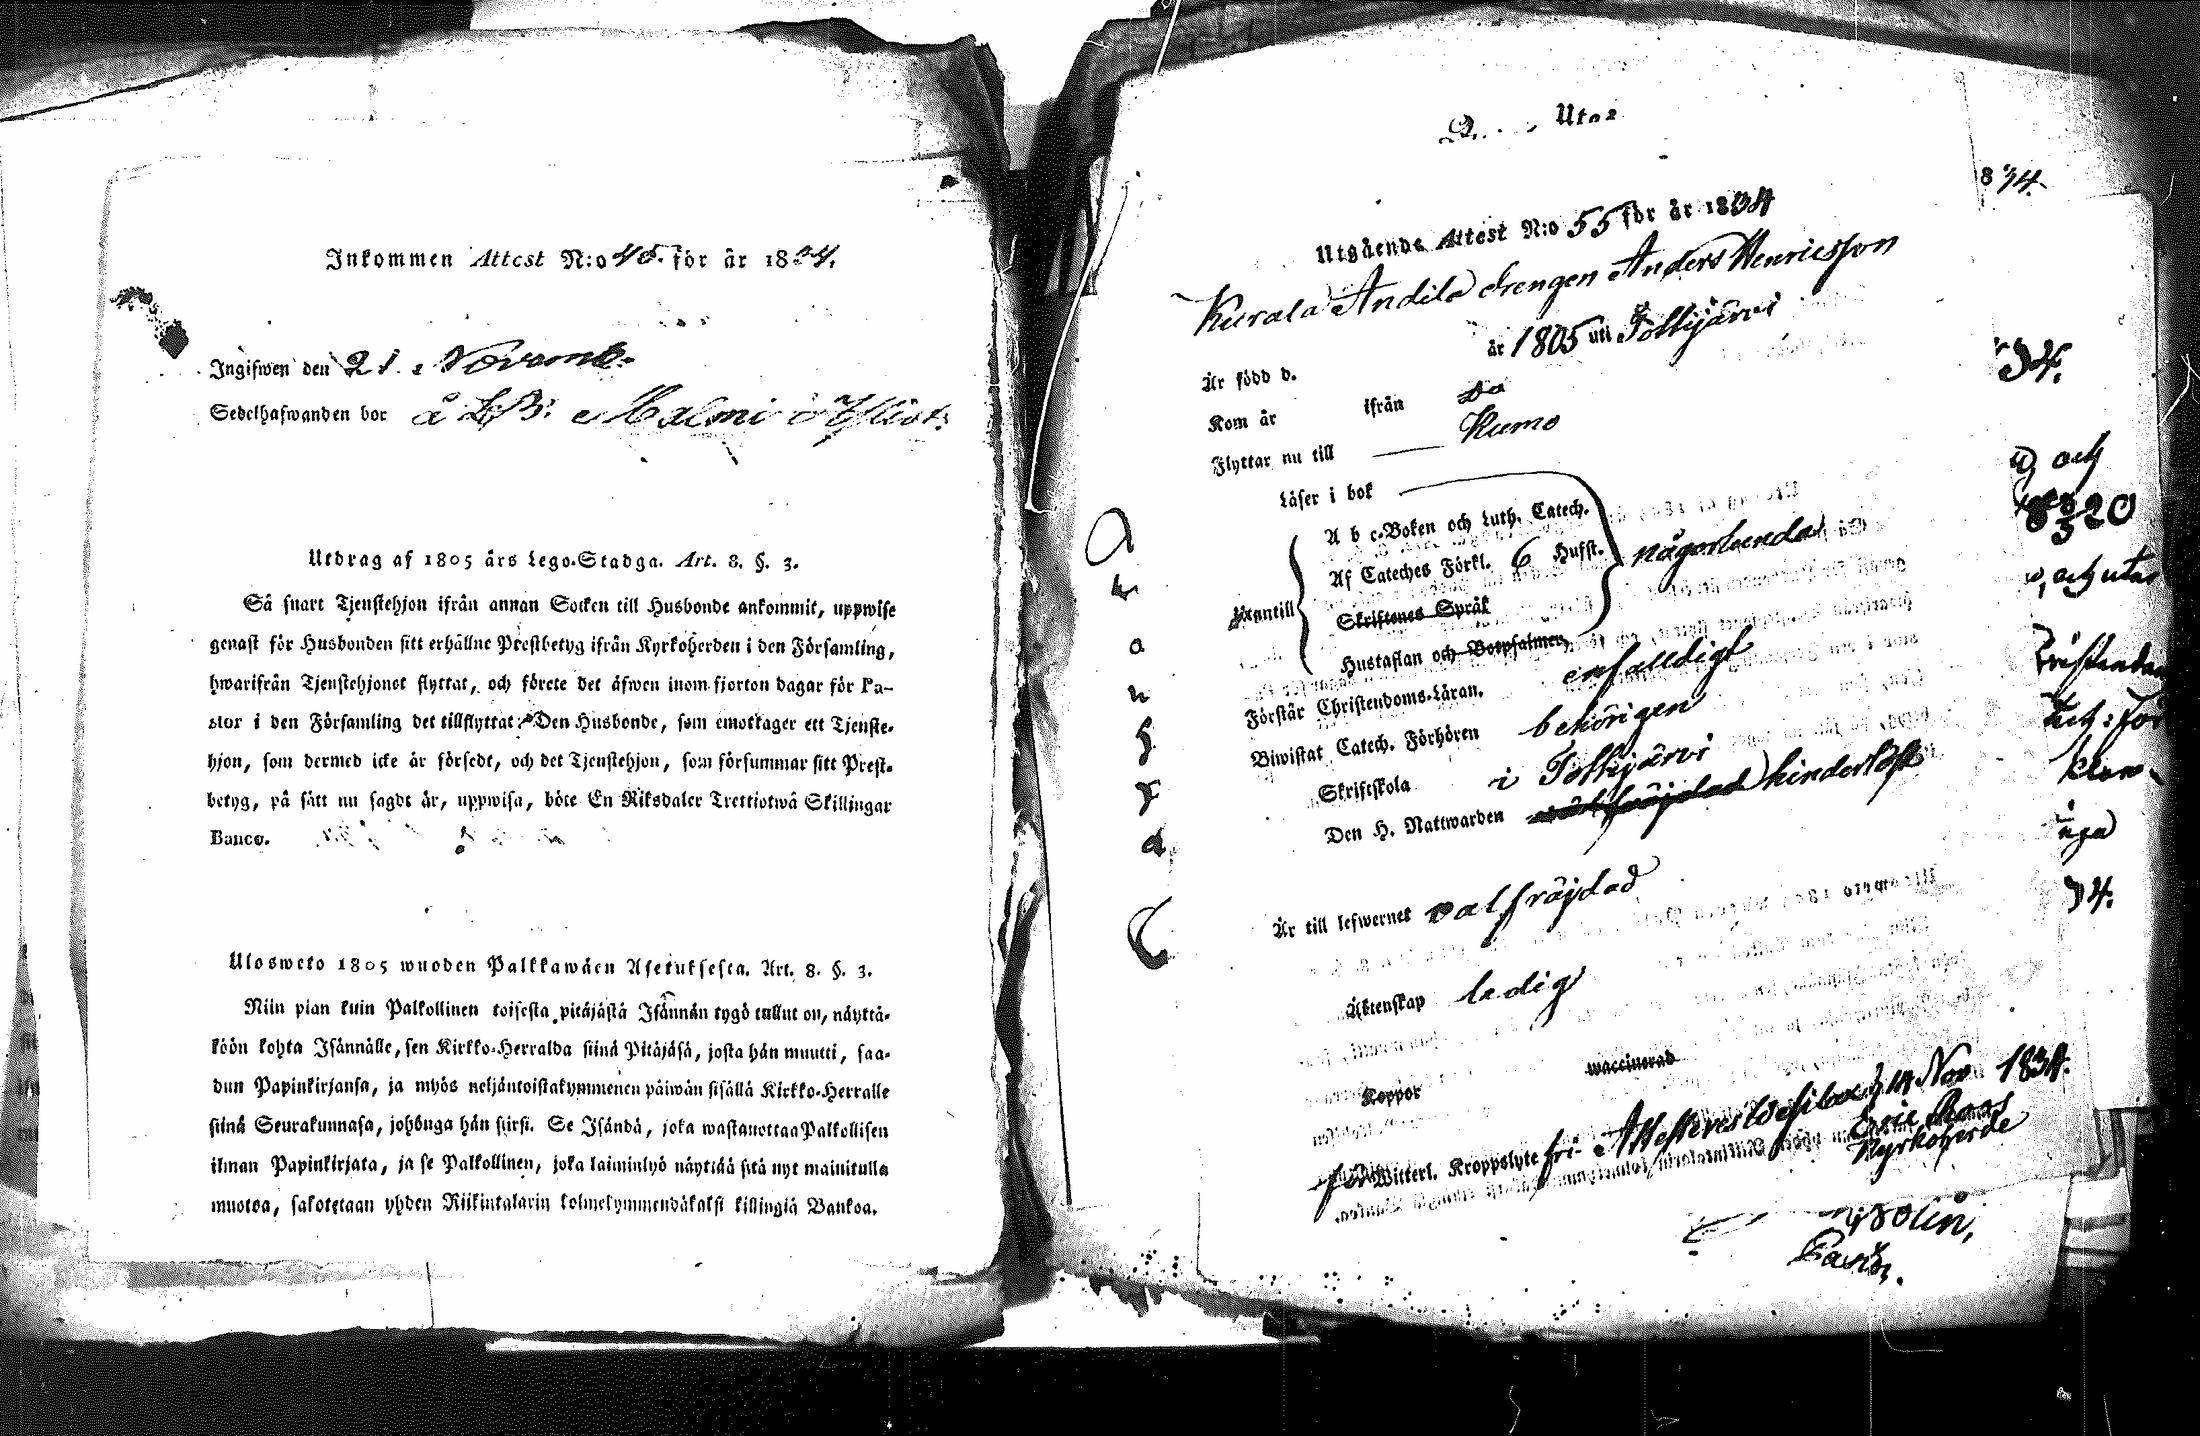 Inkommen Attest N:o 45. för år 1834.
Ingifwen den 21. Novemb.
Sedelhafwanden bor å LB: Malmi
Utdrag af 1805 års Lego-Stadga. Art. 8. §. 3.
Så snart Tjenstehjon ifrån annan Socken till Husbonde ankommit, uppwise
genast för Husbonden sitt erhållne Prestbetyg ifrån Kyrkoherden i den Församling,
hwarifrån Tjenstehjonet flyttat, och förete det äfwen inom fjorton dagar för Pa-
stor i den Församling det tillflyttat. Den Husbonde, som emottager ett Tjenste-
hjon, som dermed icke är försedt, och det Tjenstehjon, som försummar sitt Prest-
betyg, på sätt nu sagdt är, uppwisa, böte En Riksdaler Trettiotwå Skillingar
Banco.
Ulosweto 1805 wuoden Palkkawäen Asetuksesta. Art. 8. §. 3.
Niin pian kuin Palkollinen toisesta pitäjästä Isännän tygö tullut on, näyttä-
köön kohta Isännälle, sen Kirkko-Herralda siinä Pitäjäsä, josta hän muutti, saa-
dun Papinkirjansa, ja myös neljäntoistakymmenen päiwän sisällä Kirkko-Herralle
siinä Seurakunnasa, johönga hän siirsi. Se Isändä, joka wastanottaa Palkollisen
ilman Papinkirjata, ja se Palkollinen, joka laiminlyö näyttää sitä nyt mainitulla
muotoa, sakotetaan yhden Riikintalarin kolmekymmendäkaksi killingiä Bankoa.
Utgående Attest N:o 55 för år 1834
Kurala Andila drengen Anders Henricsson
Är född d. år 1805 uti Töllijärvi
Kom år ifrån do
Flyttar nu till Kumo
Läser i bok
A b c-Boken och Luth. Catech.
Af Cateches Förkl. 6 Hufst. någorlunda
utantill
Skriftenes Språk
Hustaflan och Botpsalmen,
Förstår Christendoms-Läran. enfalldigt
Biwistat Catech. Förhören behörigen
Skriftskola i Töllijärvi
Den H. Nattwarden hinderlöst
Är till lefwernet välfräjdad
Äktenskap ledig
Koppor waccinerad
för Witterl. Kroppslyte fri. Attesteres d 14 Nov. 1834.
Eric
Kyrkoherde
834.
34.
och
20
och utan
34.